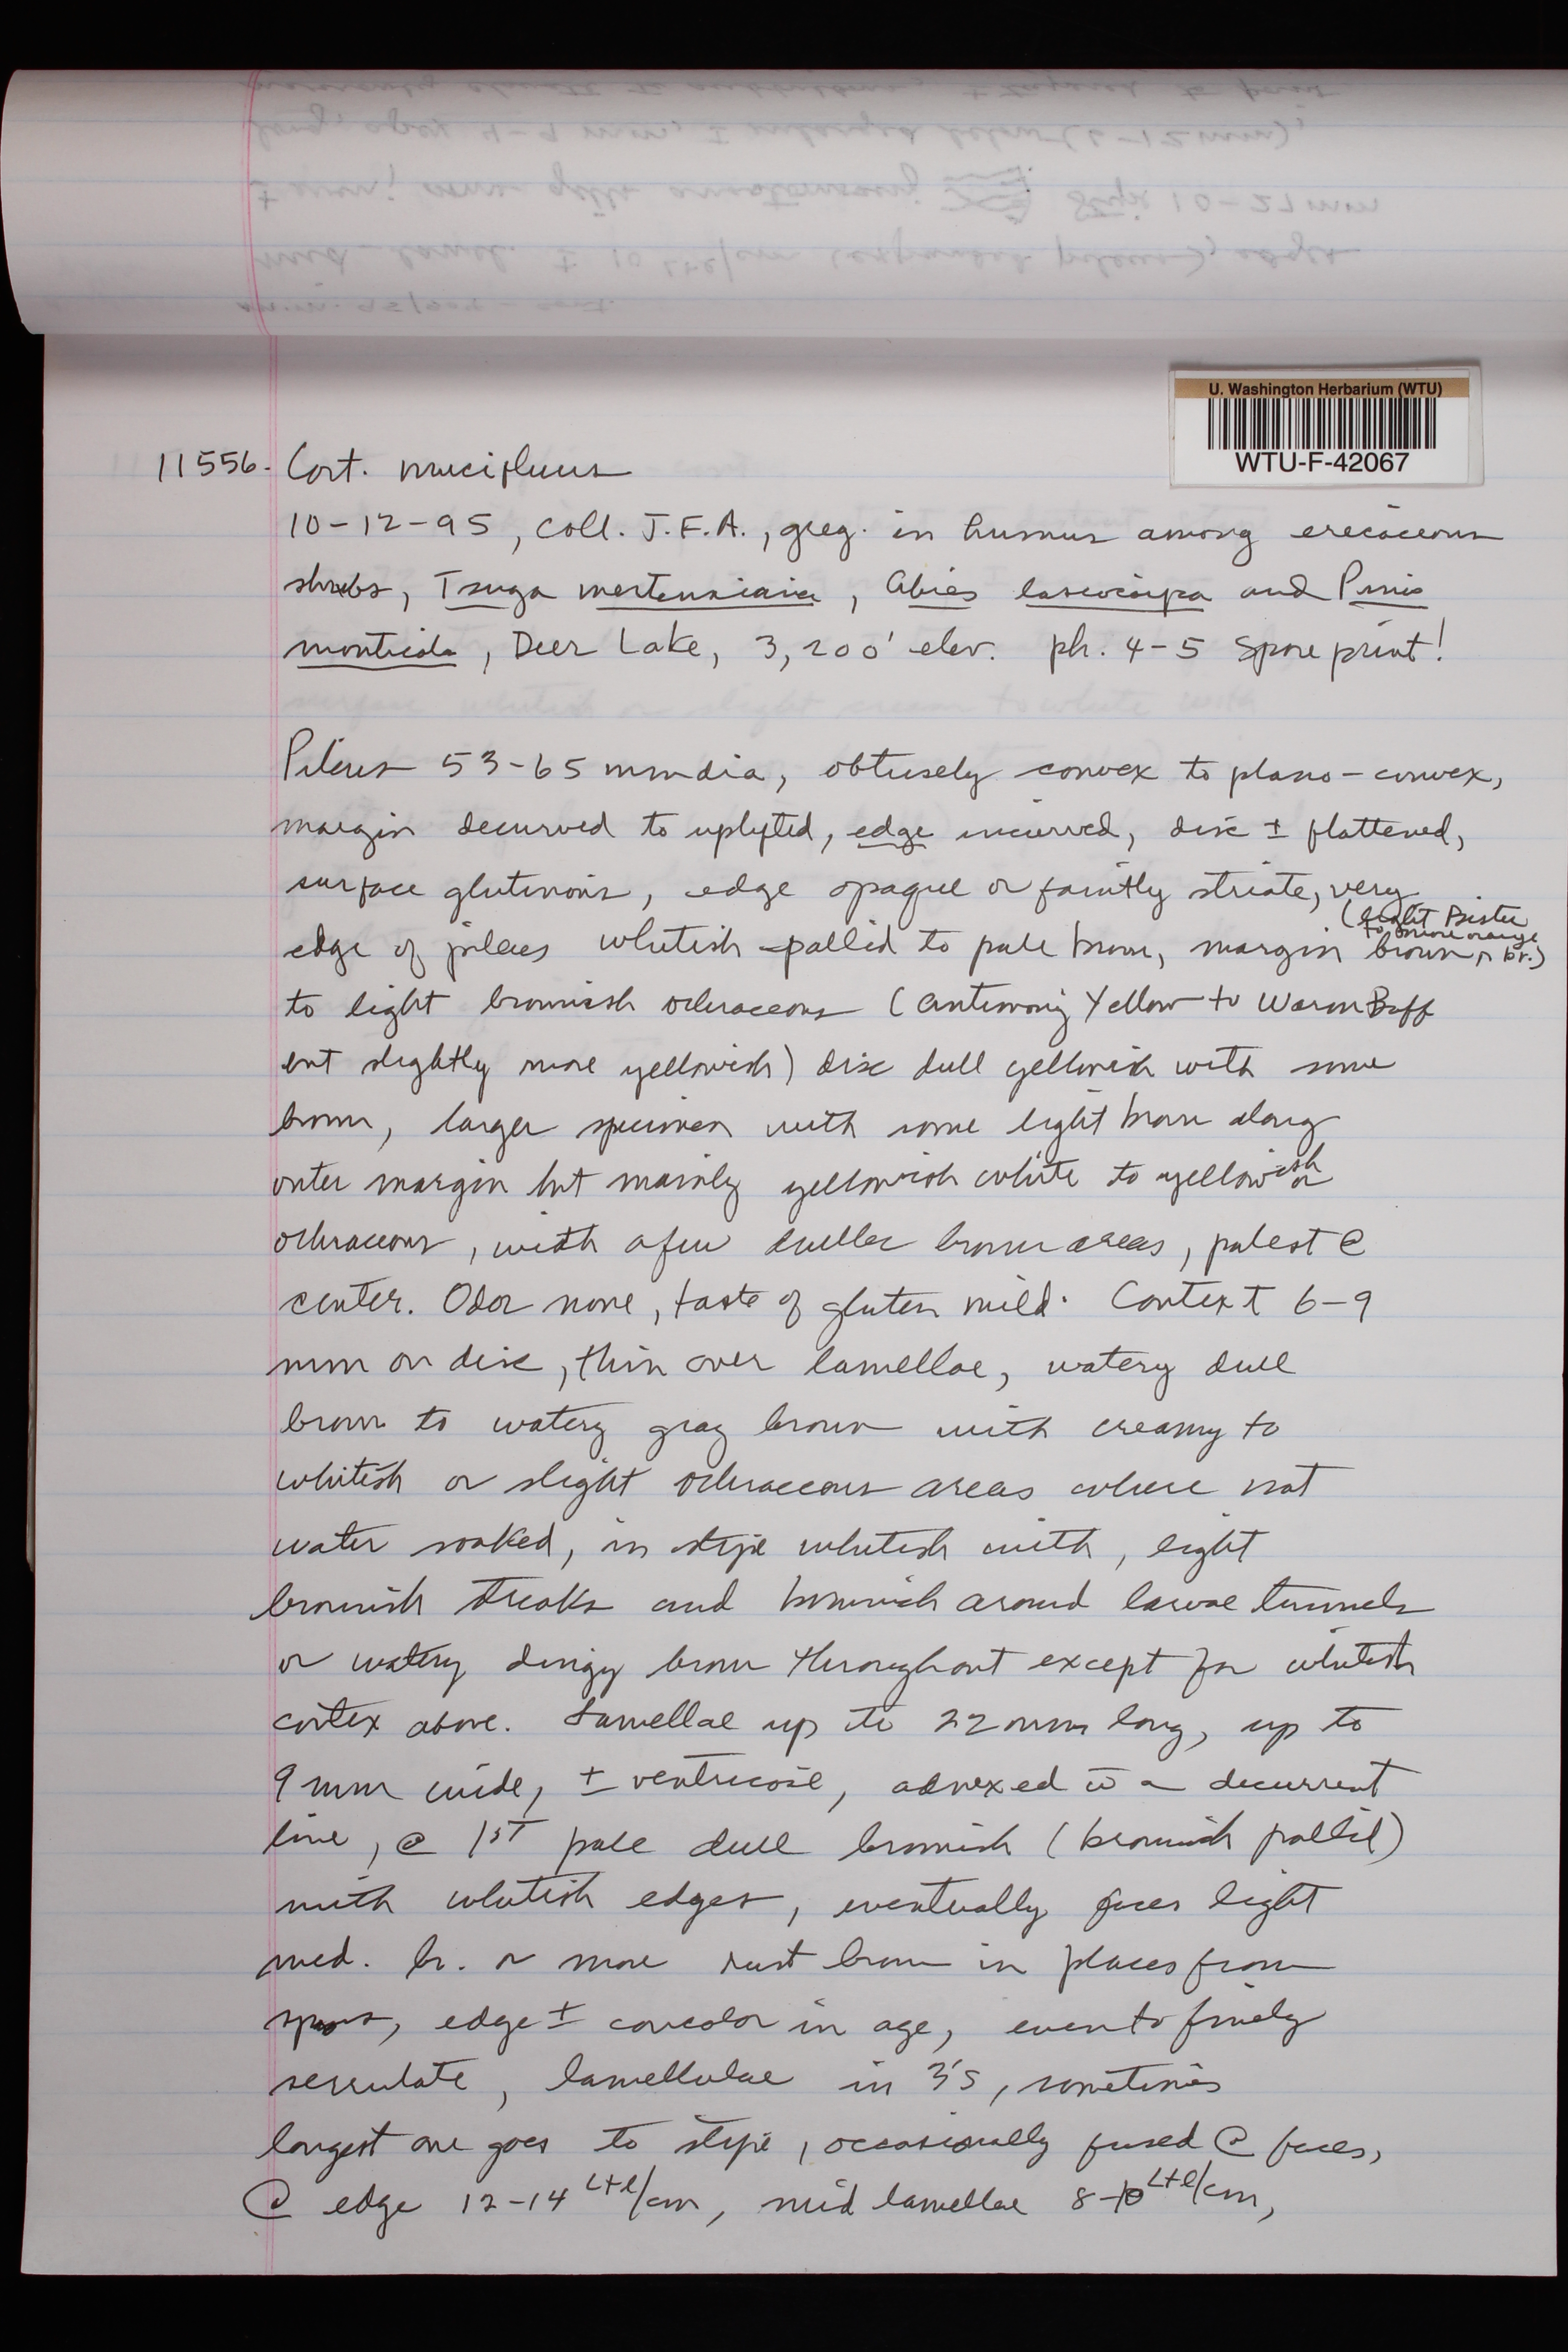 U. Washington Herbarium (WTU)
WTU-F-42067
11556. Cort. mucifluus
10-12-95, coll. J.F.A., greg. in humus among ericaceous
shrubs, Tsuga mertensiana, Abies lasiocarpa and Pinus
monticola, Deer Lake, 3,200' elev. ph. 4-5 Spore print!
Pileus 53-65 mm dia, obtusely convex to plano-convex,
margin decurved to uplifted, edge incurved, disc ± flattened,
surface glutinous, edge opaque or faintly striate, very
(light Bister
to more orange
br.)
edge of pileus whitish-pallid to pale brown, margin brown
to light brownish ochraceous (Antimony Yellow to Warm Buff
but slightly more yellowish) disc dull yellowish with some
brown, larger specimen with some light brown along
outer margin but mainly yellowish white to yellowish or
ochraceous, with a few duller brown areas, palest @
center. Odor none, taste of gluten mild. Context 6-9
mm on disc, thin over lamellae, watery dull
brown to watery gray brown with creamy to
whitish or slight ochraceous areas where not
water soaked, in stipe whitish with, light
brownish streaks and brownish around larvae tunnels
or watery dingy brown throughout except for whitish
cortex above. Lamellae up to 22 mm long, up to
9 mm wide, ± ventricose, adnexed w̄ a decurrent
line, @ 1st pale dull brownish (brownish pallid)
with whitish edges, eventually faces light
med. br. or more rust brown in places from
spores, edge ± concolor in age, even to finely
serrulate, lamellulae in 3's, sometimes
longest one goes to stipe, occasionally fused @ faces,
@ edge 12-14 L+l/cm, mid lamellae 8-10 L+l/cm,